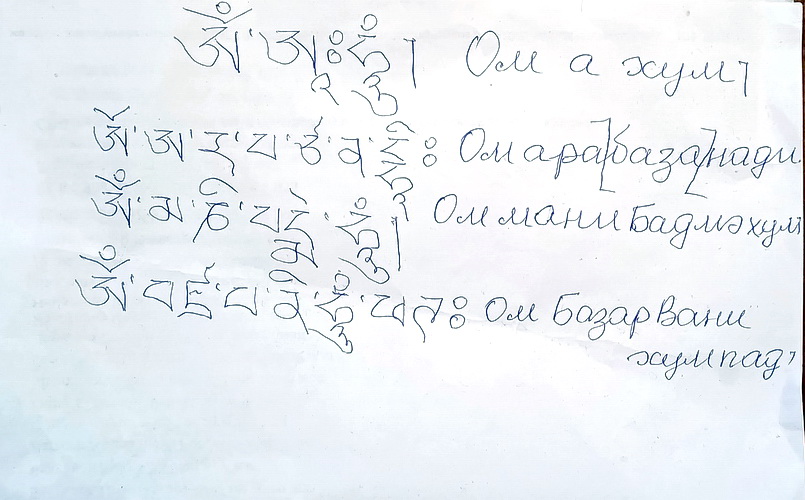 ༀ་ཨཱཿཧཱུྃ། Ом а хум
ༀ་ཨ་ར་པ་ཙ་ན་ Ом ара[база]нади
ༀ་མ་ཎི་པདྨེ་ཧཱུྃ། Ом мани Бадмэ хум
ༀ་བཛྲ་པ་ཎི་ཧཱུྃ་ཕཊ༔ Ом Базарвани
хум пад